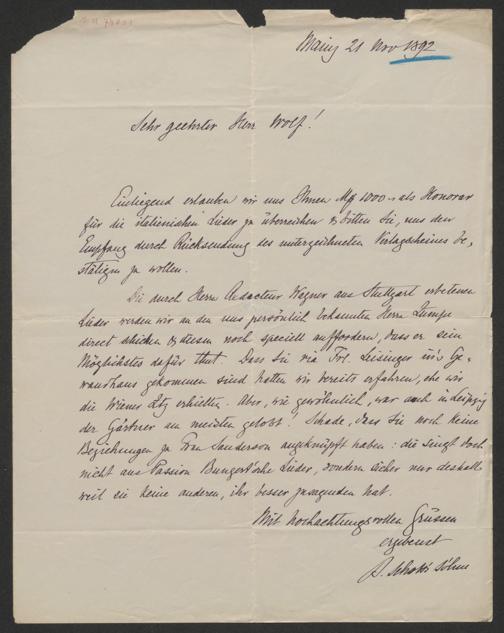 Mainz 21 Nov 1892
Sehr geehrter Herr Wolf!
Einliegend erlauben wir uns Ihnen Mk 1000.- als Honorar
für die italienischen Lieder zu überreichen & bitten Sie, uns den
Empfang durch Rücksendung des unterzeichneten Verlagsscheines be-
stätigen zu wollen.
Die durch Herrn Redacteur Wagner aus Stuttgart erbetenen
Lieder werden wir an den uns persönlich bekannten Herrn
direct schicken & diesen noch speciell auffordern, dass er sein
Möglichstes dafür thut. Dass Sie via Frl. Leisinger in's Ge-
wandhaus gekommen sind hatten wir bereits erfahren, ehe wir
die Wiener Ztg erhielten. Aber, wie gewöhnlich, war auch in Leipzig
der Gärtner am meisten gelobt! Schade, dass Sie noch keine
Beziehungen zu Frau Sanderson angeknüpft haben: die singt doch
nicht aus Passion Bungert'sche Lieder, sondern sicher nur deshalb
weil sie keine anderen, ihr besser zusagenden hat.
Mit hochachtungsvollen Grüssen
ergebenst
B. Schott's Söhne